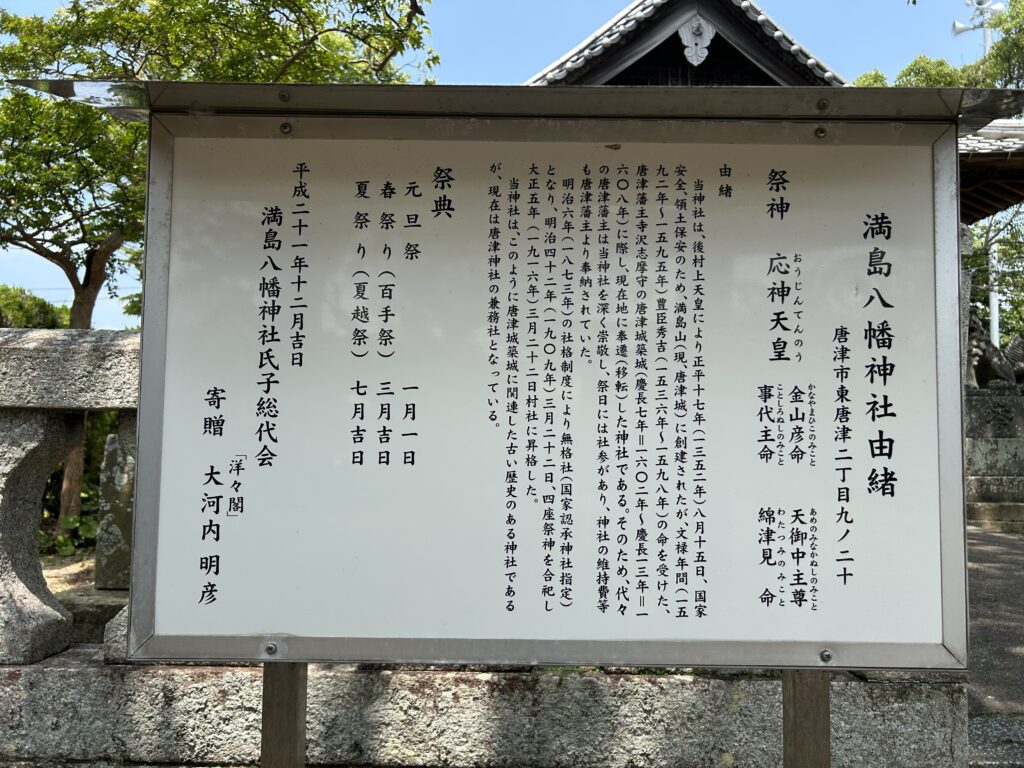 満島八幡神社由緒
唐津市東唐津二丁目九ノ二十
祭神
おうじんてんのう
応神天皇
かなやまひこのみこと
金山彦命
ことしろぬしのみこと
事代主命
あめのみなかぬしのみこと
天御中主尊
わたつみのみこと
綿津見命
由緒
当神社は、後村上天皇により正平十七年(一三五二年)八月十五日、国家
安全、領土保安のため、満島山(現 唐津城)に創建されたが、文禄年間(一五
九二年～一五九五年)豊臣秀吉(一五三六年～一五九八年)の命を受けた、
唐津藩主寺沢志摩守の唐津城築城(慶長七年＝一六〇二年～慶長一三年＝一
六〇八年)に際し、現在地に奉遷(移転)した神社である。そのため、代々
の唐津藩主は当神社を深く崇敬し、祭日には社参があり、神社の維持費等
も唐津藩主より奉納されていた。
明治六年(一八七三年)の社格制度により無格社(国家認承神社指定)
となり、明治四十二年(一九〇九年)三月二十二日、四座祭神を合祀し
大正五年(一九一六年)三月二十二日村社に昇格した。
当神社は、このように唐津城築城に関連した古い歴史のある神社である
が、現在は唐津神社の兼務社となっている。
祭典
元旦祭 一月一日
春祭り(百手祭) 三月吉日
夏祭り(夏越祭) 七月吉日
平成二十一年十二月吉日
満島八幡神社氏子総代会
「洋々閣」
寄贈 大河内明彦